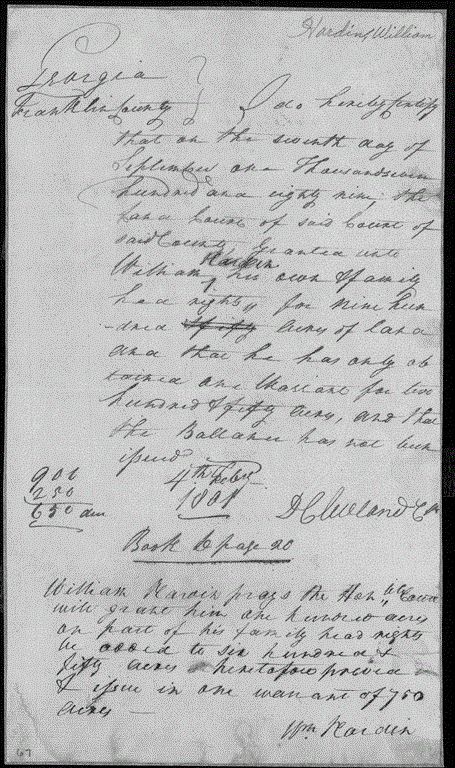 Hardin, William
Georgia
Franklin County } I do hereby Certify
that on the seventh day of
September one Thousand seven
hundred and eighty nine, the
Land Court of said Court of
said County, Granted unto
William Hardin, his own & family
head rights, for Nine hun
-dred & fifty acres of land
and that he has only ob
tained one Warrant for two
hundred & fifty acres, and that
the Ballance has not been
issued 4th Feby
1801
D Cleveland
900
250
650
Book page 20
William Hardin prays the Honble Court
will grant him one hundred acres
on part of his family head rights
be added to six hundred &
fifty acres heretofore proved
& issue in one warrant of 750
acres —
Wm Hardin
67